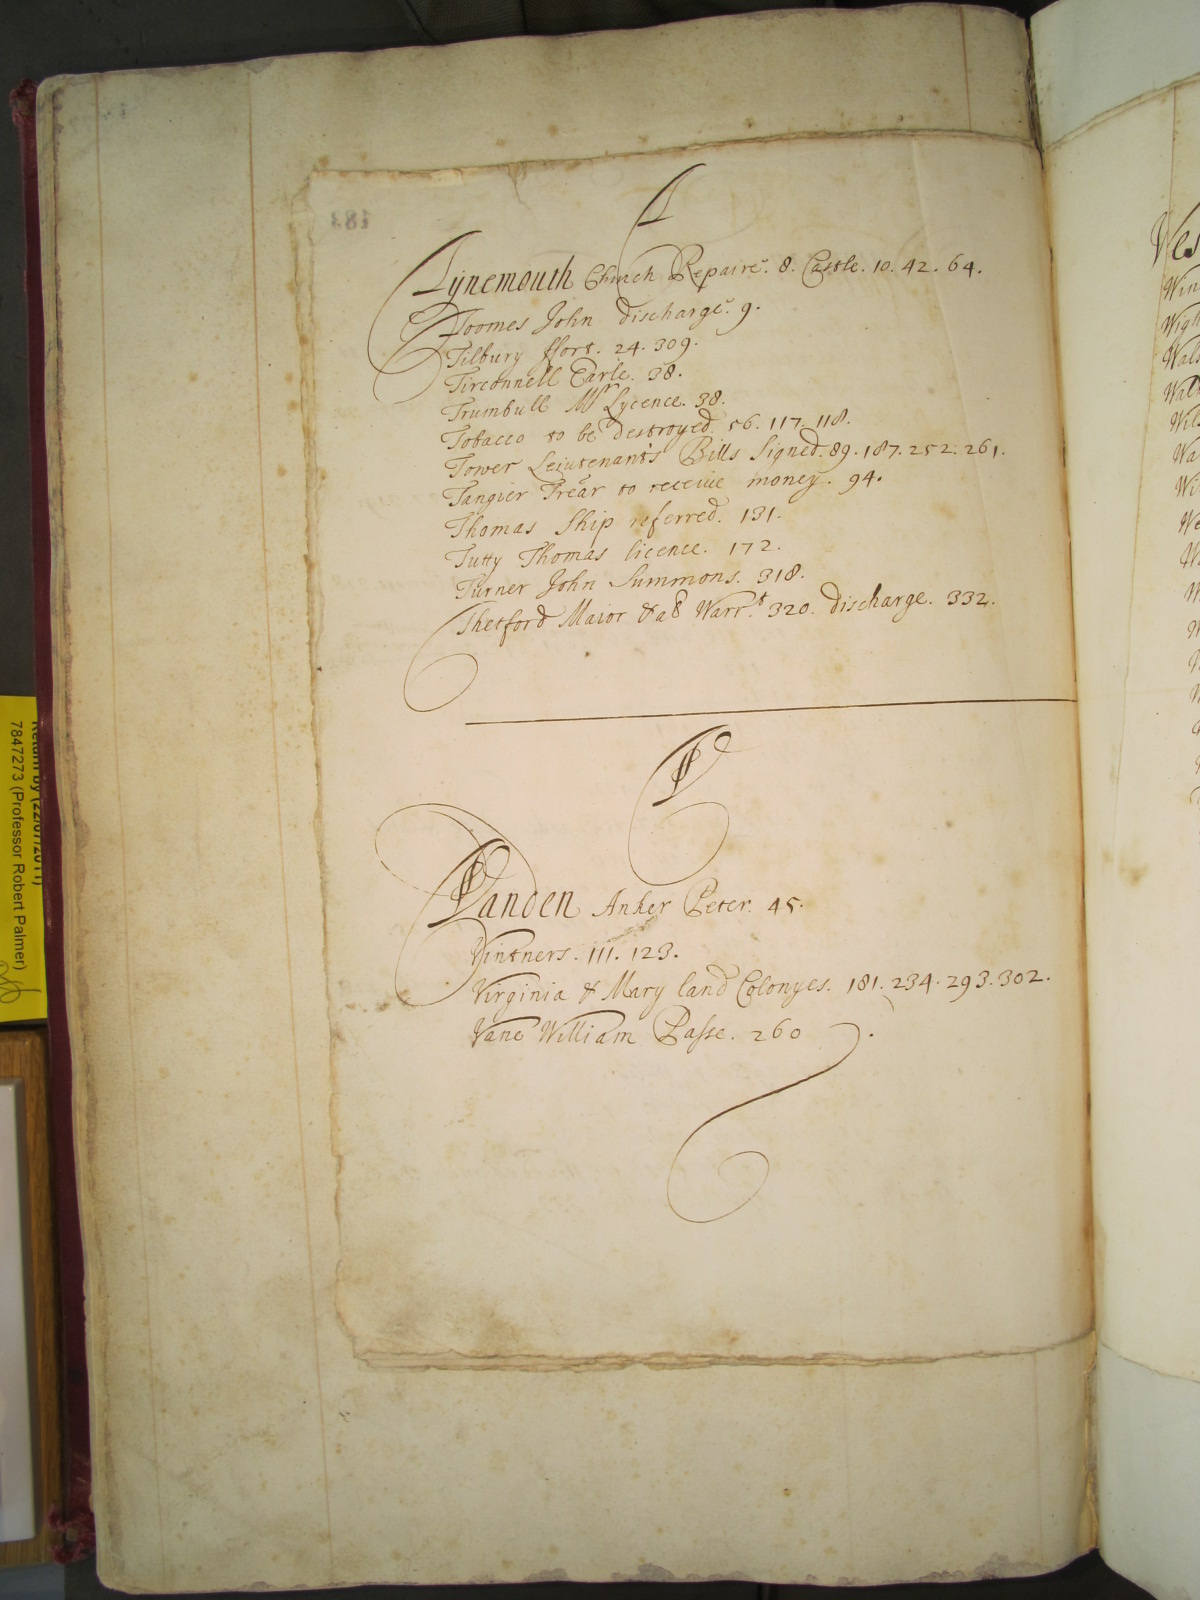 T
Tynemouth Church Repaire. 8. Castle. 10. 42. 64.
Toomes John discharge. 9.
Tilbury ffort. 24. 309.
Tirconnell Earle. 38.
Trumbull Mr Lycence. 38.
Tobacco to be destroyed. 56. 117. 118.
Tower Leiutenants Bills Signed. 89. 187. 252. 261.
Tangier Trear to receive money. 94.
Thomas Ship referred. 131.
Tutty Thomas licence. 172.
Turner John Summons. 318.
Thetford Maior &a Warrt. 320. discharge. 332.
V
Vanden Anker Peter. 45.
Vintners. 111. 123.
Virginia & Mary land Colonyes. 181. 234. 293. 302.
Vane William Passe. 260.
Return by (22/07/2011)
7847273 (Professor Robert Palmer)
183
Ves
Win
Wigh
Wals
Walk
Wils
Wa
Wi
We